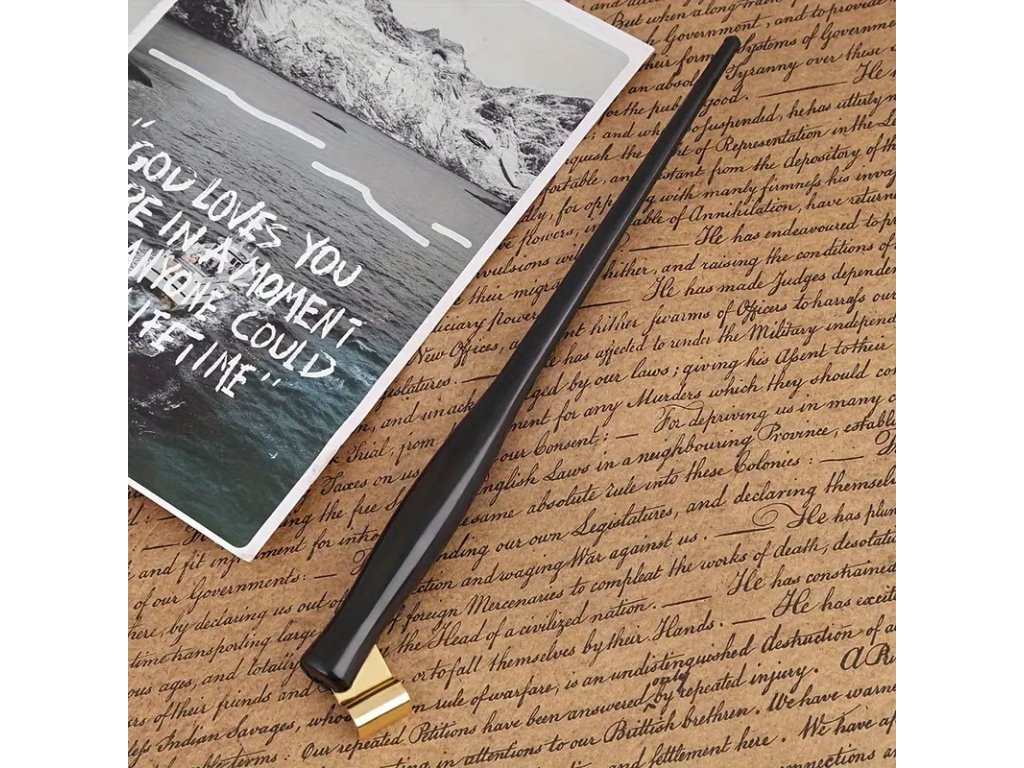 "GOD LOVES YOU
RE IN A MOMENT
ANYONE COULD
LIFETIME"
But when a long train
Government, and to provide
their form Systems of Government
an absol Tyranny over these
for the public good. — He
; and wh so suspended, he has utterly n
quish the t of Representation in the Le
fortable, and istant from the depository of th
ly, for opp with manly firmness his inva
e powers, in able of Annihilation, have return
vulsions within. — He has endeavoured to pr
their migra hither, and raising the conditions of
iciary powers — He has made Judges depender
New Offices, a nt hither swarms of Officers to harrass our
gislatures. — e has affected to render the Military independ
n, and unack ged by our laws; giving his Assent to their
Trial, from nment for any Murders which they should co
Taxes on us our Consent: — For depriving us in many c
ng the free S nglish Laws in a neighbouring Province, establ
for intro same absolute rule into these Colonies : — Th
and fit in nding our own Legislatures, and declaring themsel
of our Governments: — tion and waging War against us. — He has plun
here, by declaring us out of foreign Mercenaries to compleat the works of death, desolat
time transporting large the Head of a civilized nation. — He has constrained
ous ages, and totally or to fall themselves by their Hands. — He has excit
of their friends and n rule of warfare, is an undistinguished destruction of a
less Indian Savages, who have been answered by only repeated injury. A Pr
Our repeated Petitions in attentions to our Brittish brethren. We have warne
and settlement here. We have ap
connections and